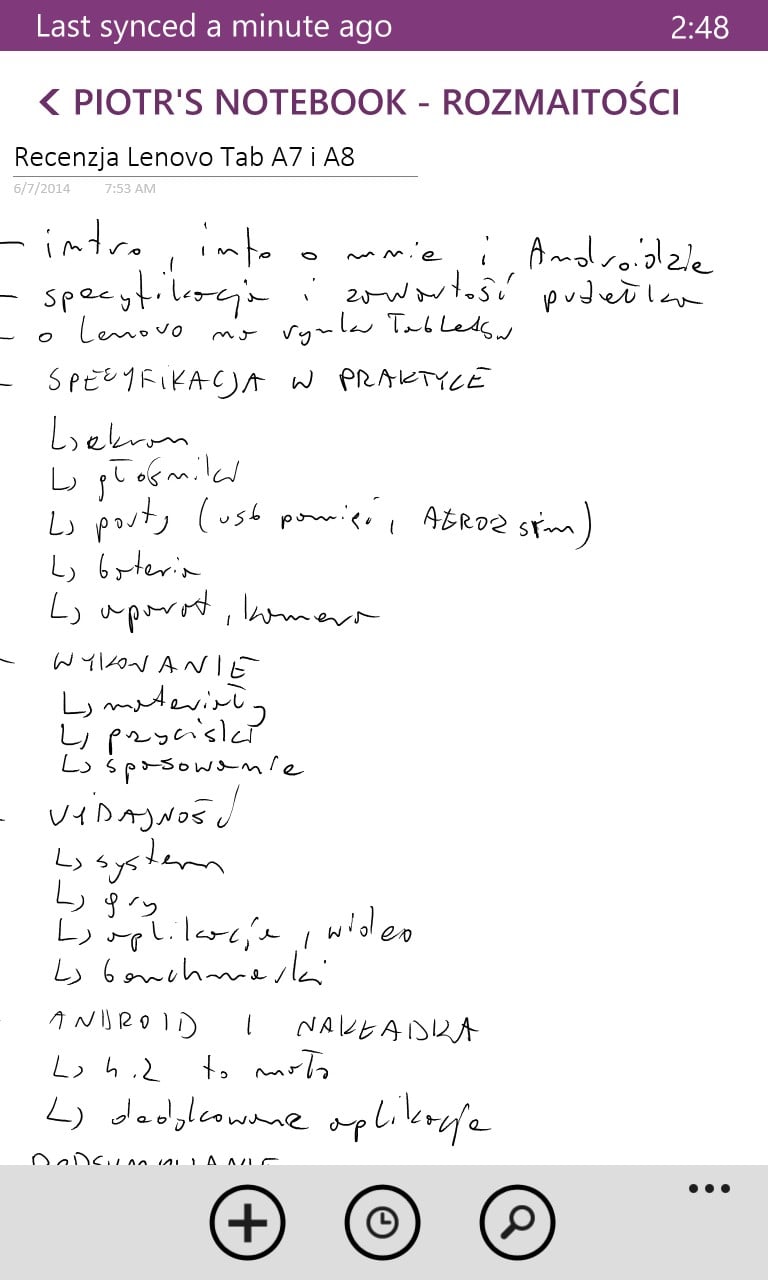 Last synced a minute ago 2:48
< PIOTR'S NOTEBOOK - ROZMAITOŚCI
Recenzja Lenovo Tab A7 i A8
6/7/2014 7:53 AM
- intro, info o mnie i Androidzie
- specyfikacja i zawartość pudełka
- o Lenovo na rynku Tabletów
- SPECYFIKACJA W PRAKTYCE
↳ ekran
↳ głośniki
↳ porty (usb pamięć, AERO2 sim)
↳ bateria
↳ aparat, kamera
- WYKONANIE
↳ materiały
↳ przyciski
↳ spasowanie
- WYDAJNOŚĆ
↳ system
↳ gry
↳ aplikacje, wideo
↳ benchmarki
- ANDROID I NAKŁADKA
↳ 4.2 to mało
↳ dedykowane aplikacje
PODSUMOWANIE